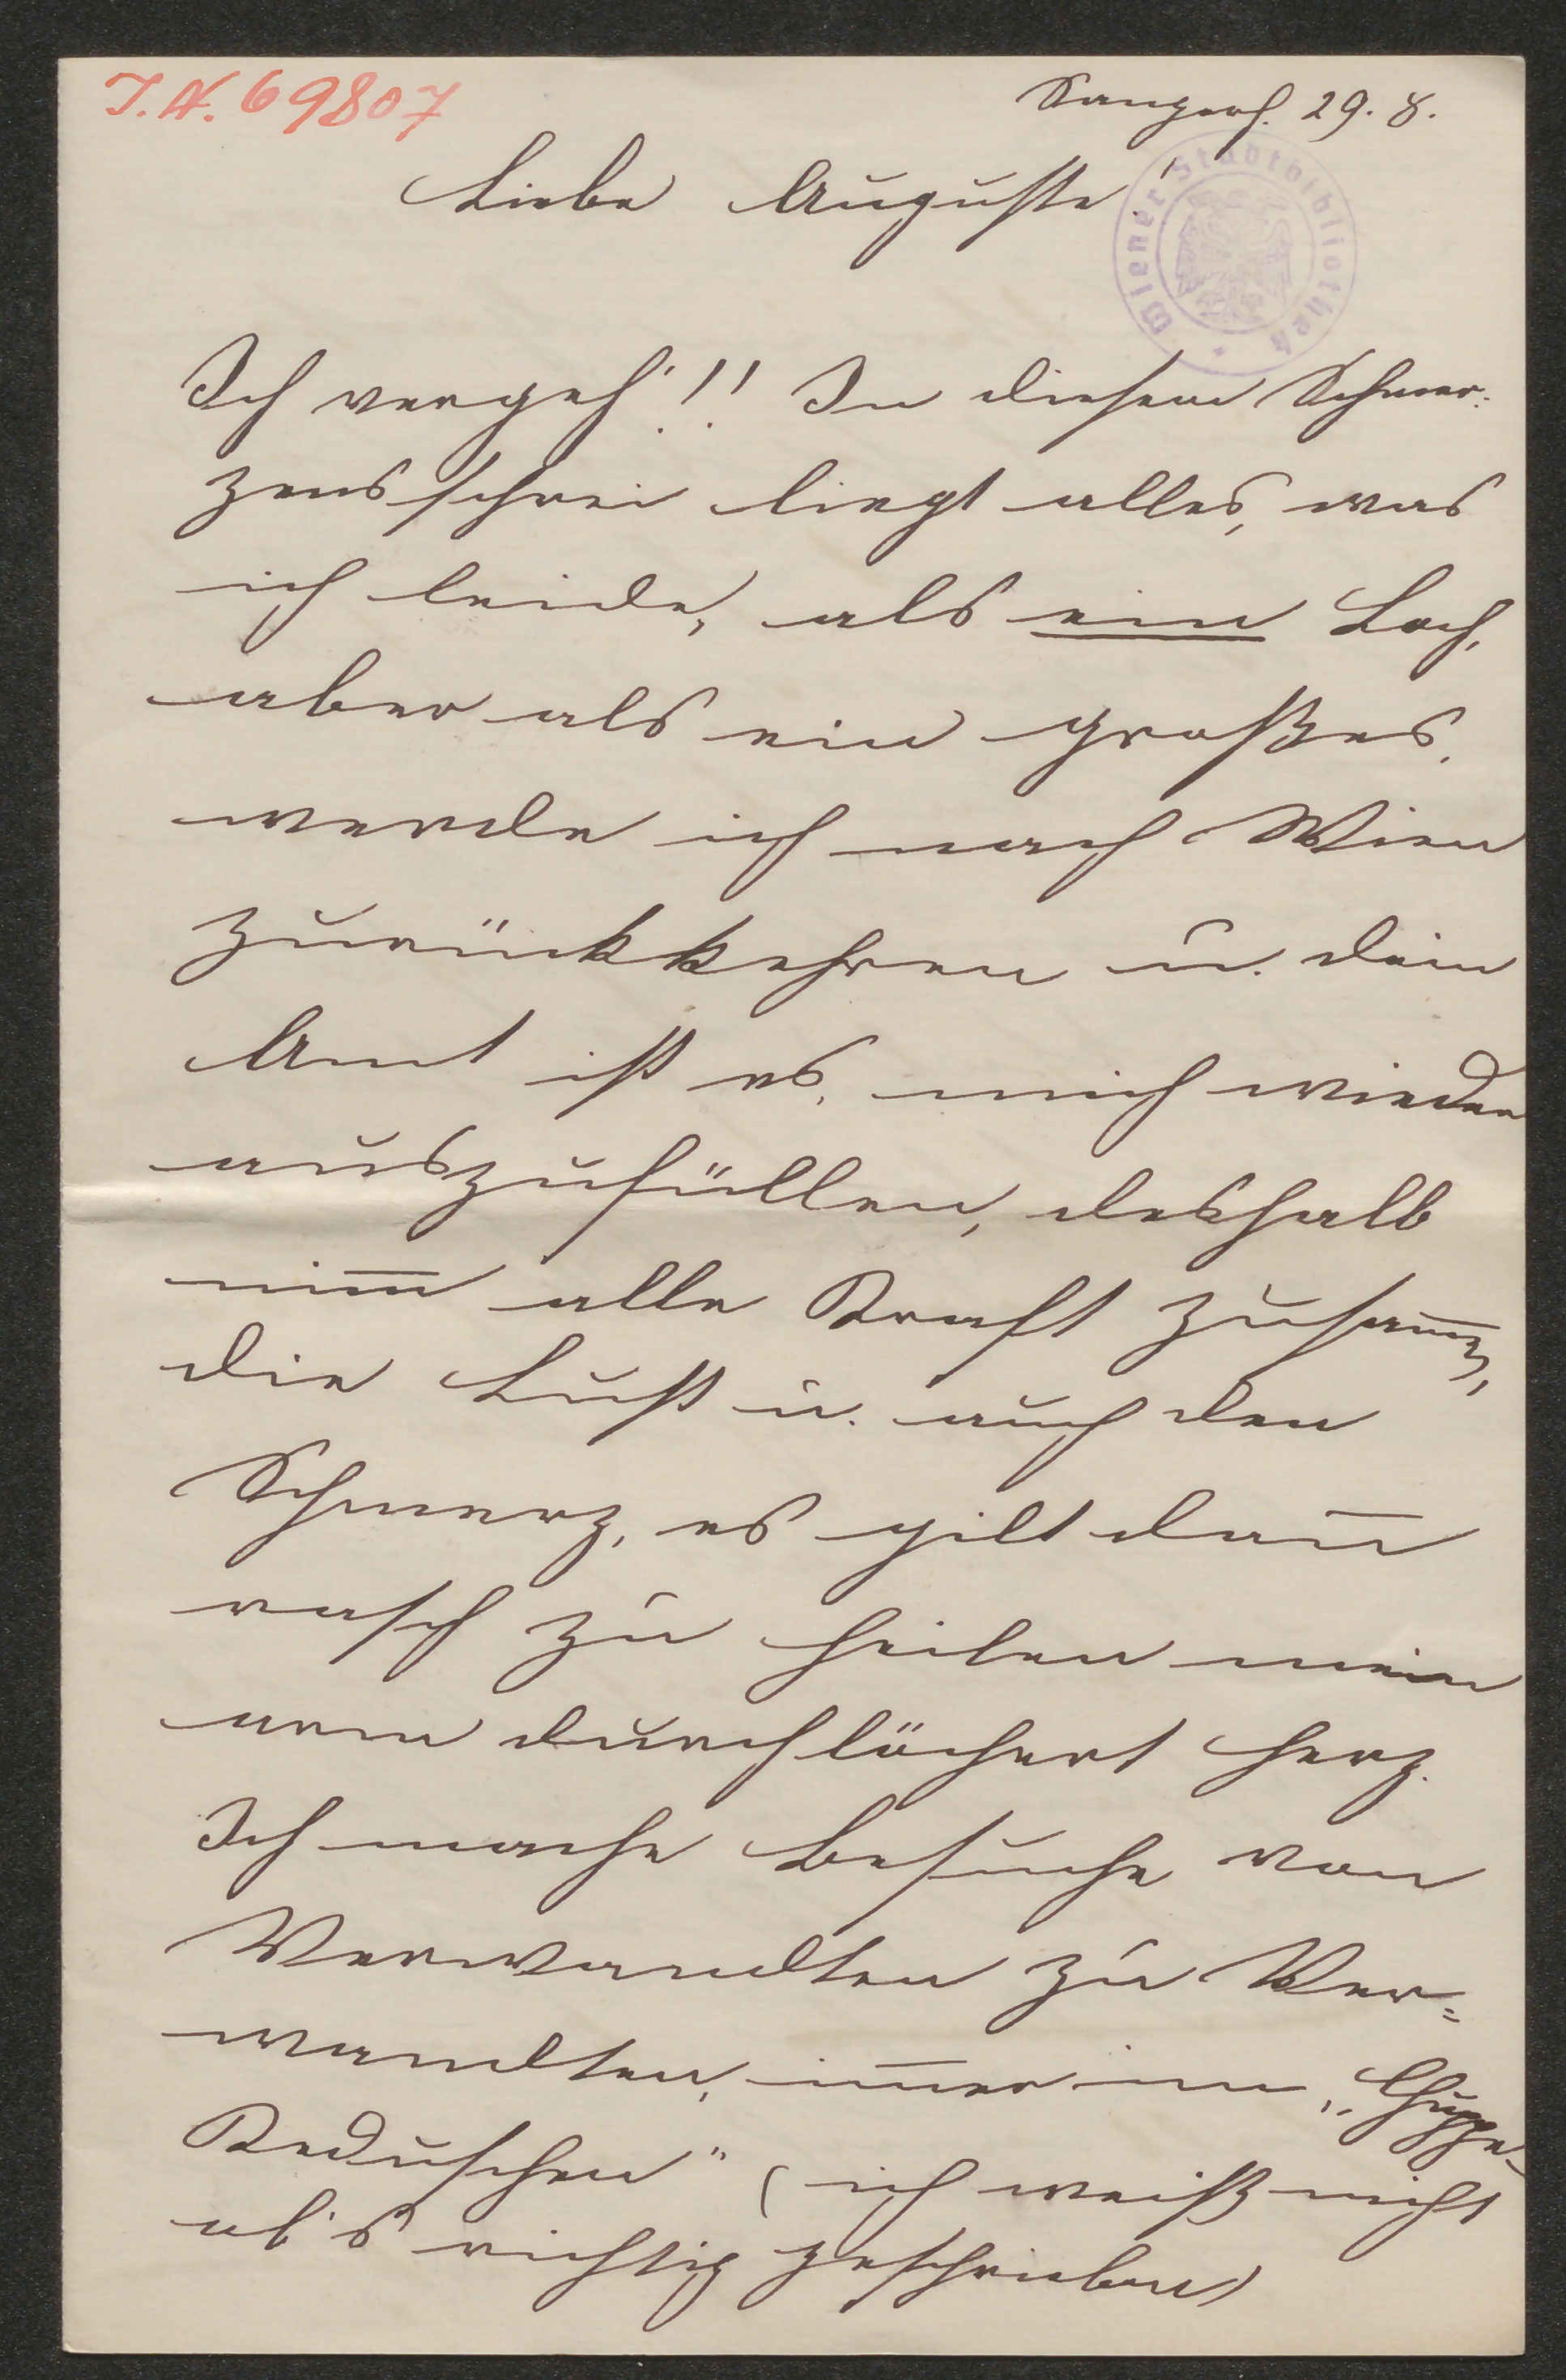 J.N. 69807
Sangerh. 29. 8.
Wiener Stadtbibliothek
Liebe Auguste!
Ich vergeh'!! In diesem Schmer:
zensschrei liegt alles, was
ich leide, als ein Loch,
aber als ein großes,
werde ich nach Wien
zurückkehren u. dein
Amt ist es, mich wieder
auszufüllen, deshalb
nim̅ alle Kraft zusam̅en,
die Lust u. auch den
Schmerz, es gilt dan̅
rasch zu heilen mein
arm durchlöchert Herz.
Ich mache Besuche von
Verwandten zu Ver=
wandten, im̅er im
Reduschen" (ich weiß nicht
ob's richtig geschrieben)